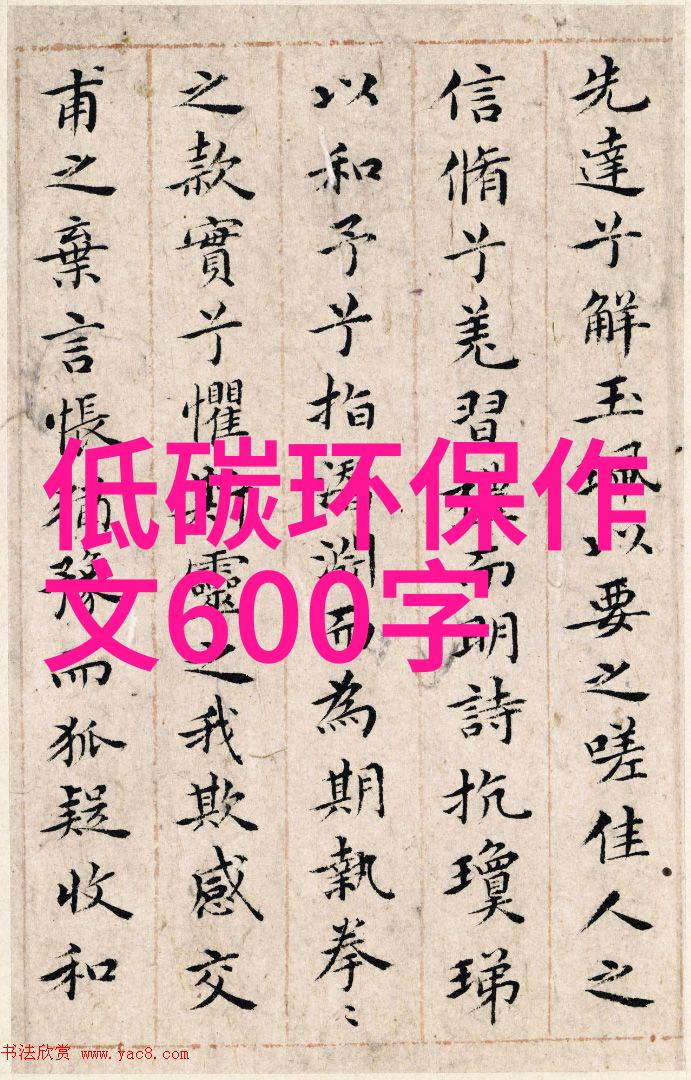 先達兮解玉珮以要之嗟佳人之
信脩兮羗習而明詩抗瓊珶
以和予兮指潛淵而為期執拳〻
之款實兮懼斯靈之我欺感交
甫之棄言悵猶豫而狐疑收和
低碳环保作
文600字
书法欣赏 www.yac8.com